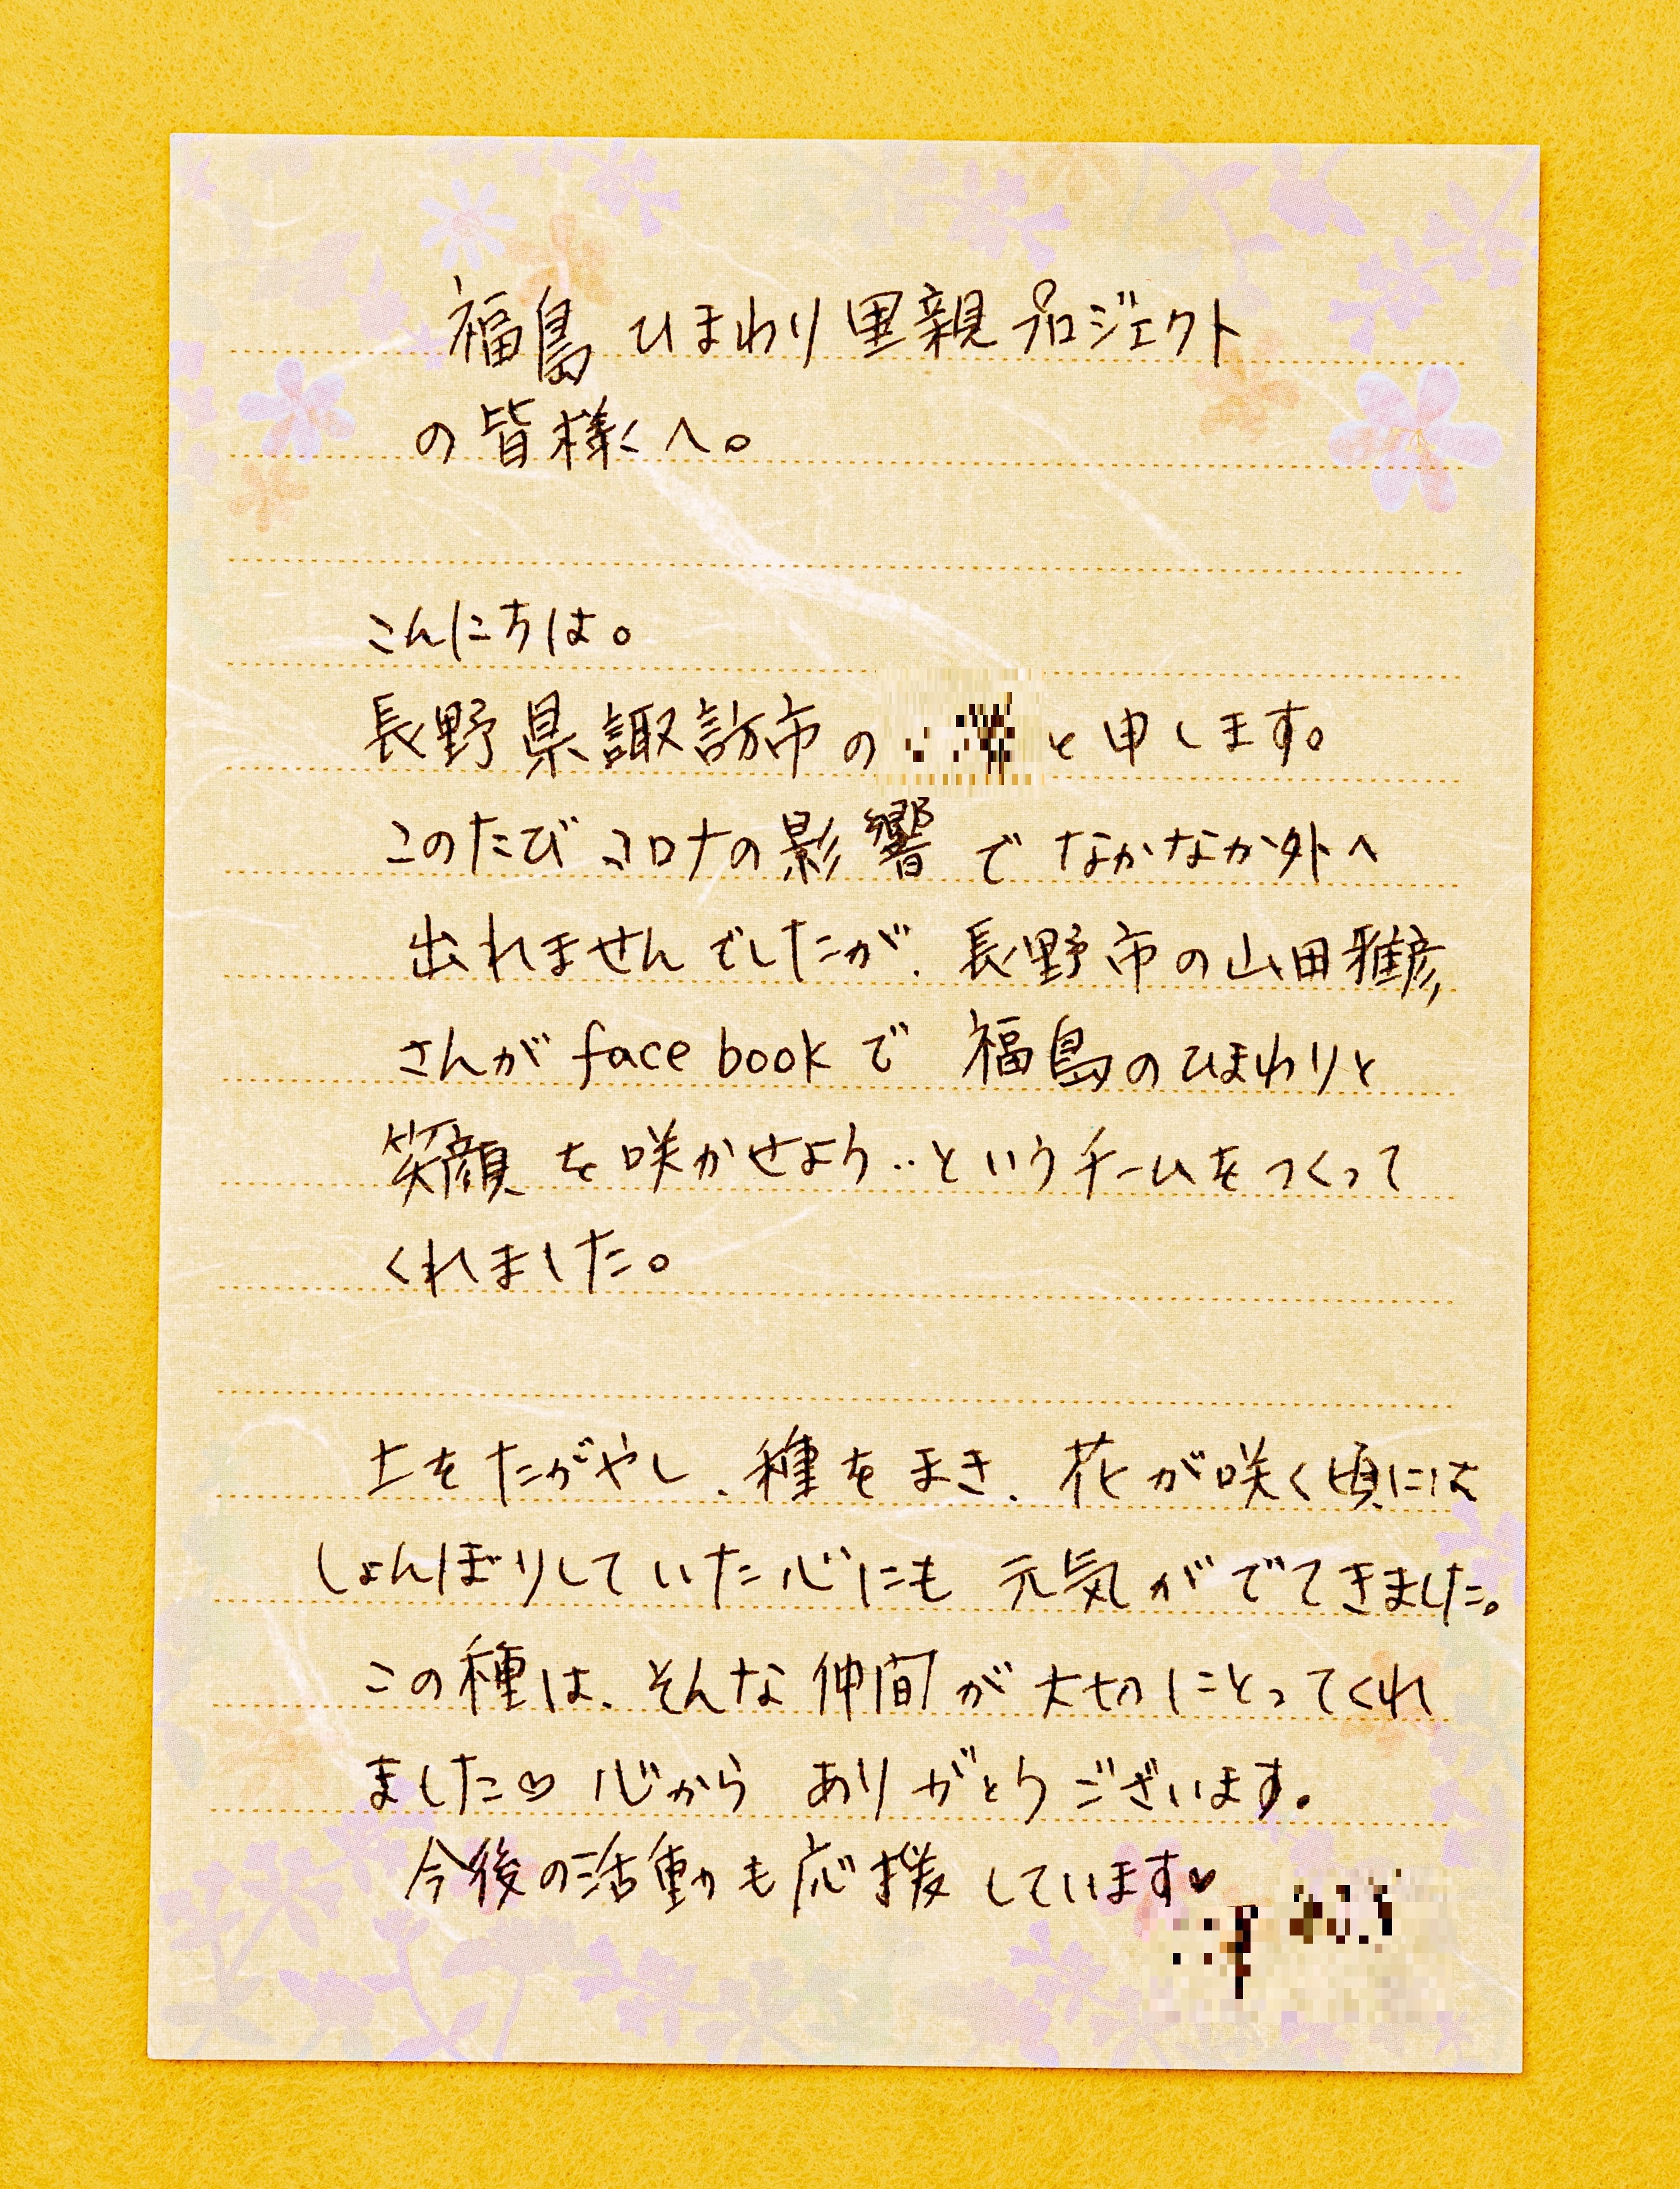 福島 ひまわり里親プロジェクト
の皆様へ。
こんにちは。
長野県諏訪市の と申します。
このたび コロナの影響で なかなか外へ
出れませんでしたが、長野市の山田雅彦
さんが facebookで 福島のひまわりと
笑顔 を咲かせよう‥というチームをつくって
くれました。
土をたがやし、種をまき、花が咲く頃には
しょんぼりしていた心にも 元気がでてきました。
この種は、そんな仲間が大切にとってくれ
ました♡ 心から ありがとうございます。
今後の活動も応援 しています♥